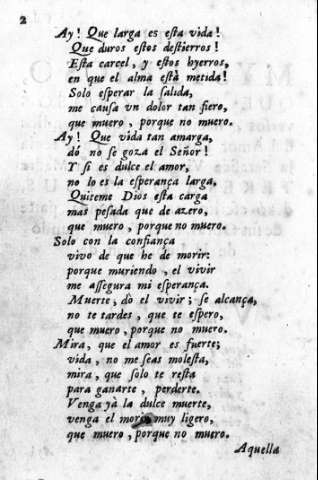 2
Ay! Que larga es esta vida!
Que duros estos destierros!
Esta carcel, y estos hyerros,
en que el alma està metida!
Solo esperar la salida,
me causa vn dolor tan fiero,
que muero, porque no muero.
Ay! Que vida tan amarga,
dó no se goza el Señor!
Y si es dulce el amor,
no lo es la esperança larga,
Quiteme Dios esta carga
mas pesada que de azero,
que muero, porque no muero.
Solo con la confiança
vivo de que he de morir:
porque muriendo, el vivir
me assegura mi esperança.
Muerte, dò el vivir; se alcança,
no te tardes, que te espero,
que muero, porque no muero.
Mira, que el amor es fuerte;
vida, no me seas molesta,
mira, que solo te resta
para ganarte, perderte.
Venga yà la dulce muerte,
venga el muy ligero,
que muero, porque no muero.
Aquella